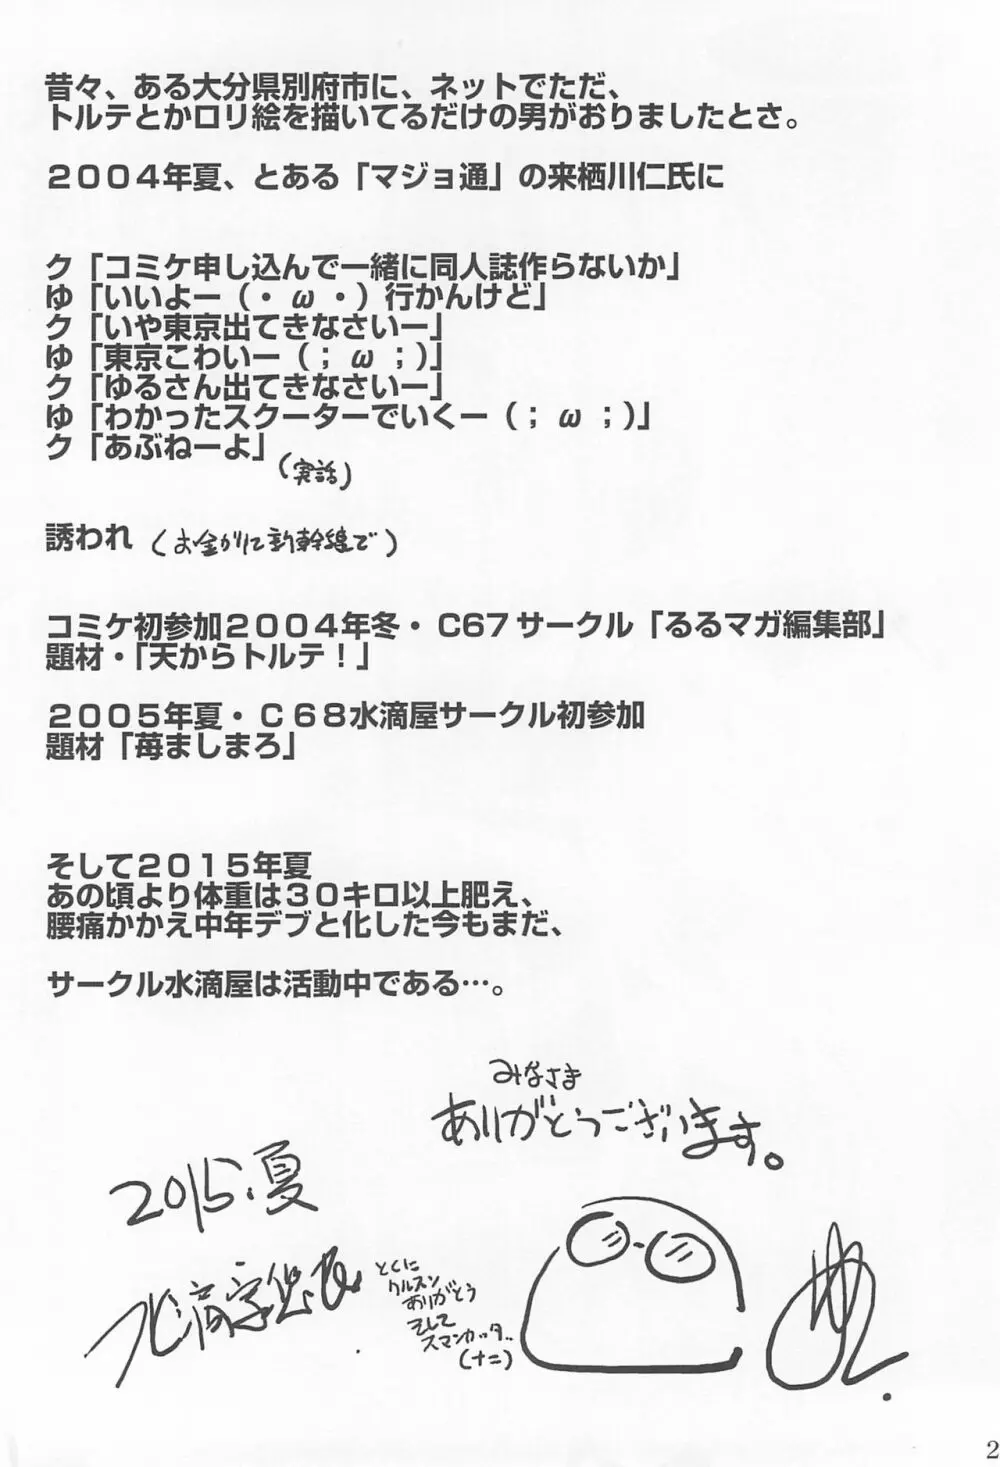 昔々、ある大分県別府市に、ネットでただ、
トルテとかロリ絵を描いてるだけの男がおりましたとさ。
２００４年夏、とある「マジョ通」の来栖川仁氏に
ク「コミケ申し込んで一緒に同人誌作らないか」
ゆ「いいよー（・ω・）行かんけど」
ク「いや東京出てきなさいー」
ゆ「東京こわいー（；ω；）」
ク「ゆるさん出てきなさいー」
ゆ「わかったスクーターでいくー（；ω；）」
ク「あぶねーよ」
(実話)
誘われ（お金かりて新幹線で）
コミケ初参加２００４年冬・Ｃ６７サークル「るるマガ編集部」
題材・「天からトルテ！」
２００５年夏・Ｃ６８水滴屋サークル初参加
題材「苺ましまろ」
そして２０１５年夏
あの頃より体重は３０キロ以上肥え、
腰痛かかえ中年デブと化した今もまだ、
サークル水滴屋は活動中である…。
みなさま
ありがとうございます。
2015.夏
とくに
クルスン
ありがとう
そして
スマンカッタ..
2